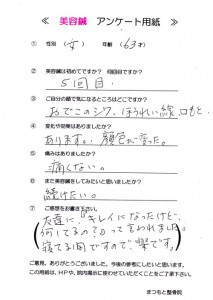 ≪ 美容鍼 アンケート用紙 ≫
① 性別 (女) 年齢 (63才)
② 美容鍼は初めてですか? 何回目ですか?
5回目.
③ ご自分の顔で気になるところはどこですか?
おでこのシワ、ほうれい線、口もと.
④ 変化や効果はありましたか?
あります。顔色が違った。
⑤ 痛みはありましたか?
痛くない。
⑥ また美容鍼をしてみたいと思いましたか?
続けたい。
⑦ ご感想をお書き下さい。
友達に"キレイになったけど、
何してるの?"って言われました。
寝てる間ですので、楽です。
ご意見、ありがとうございました。今後の参考にしたいと思います。
この用紙は、HPや、院内掲示に使わせていただくことをご了承下さい。
まつもと整骨院